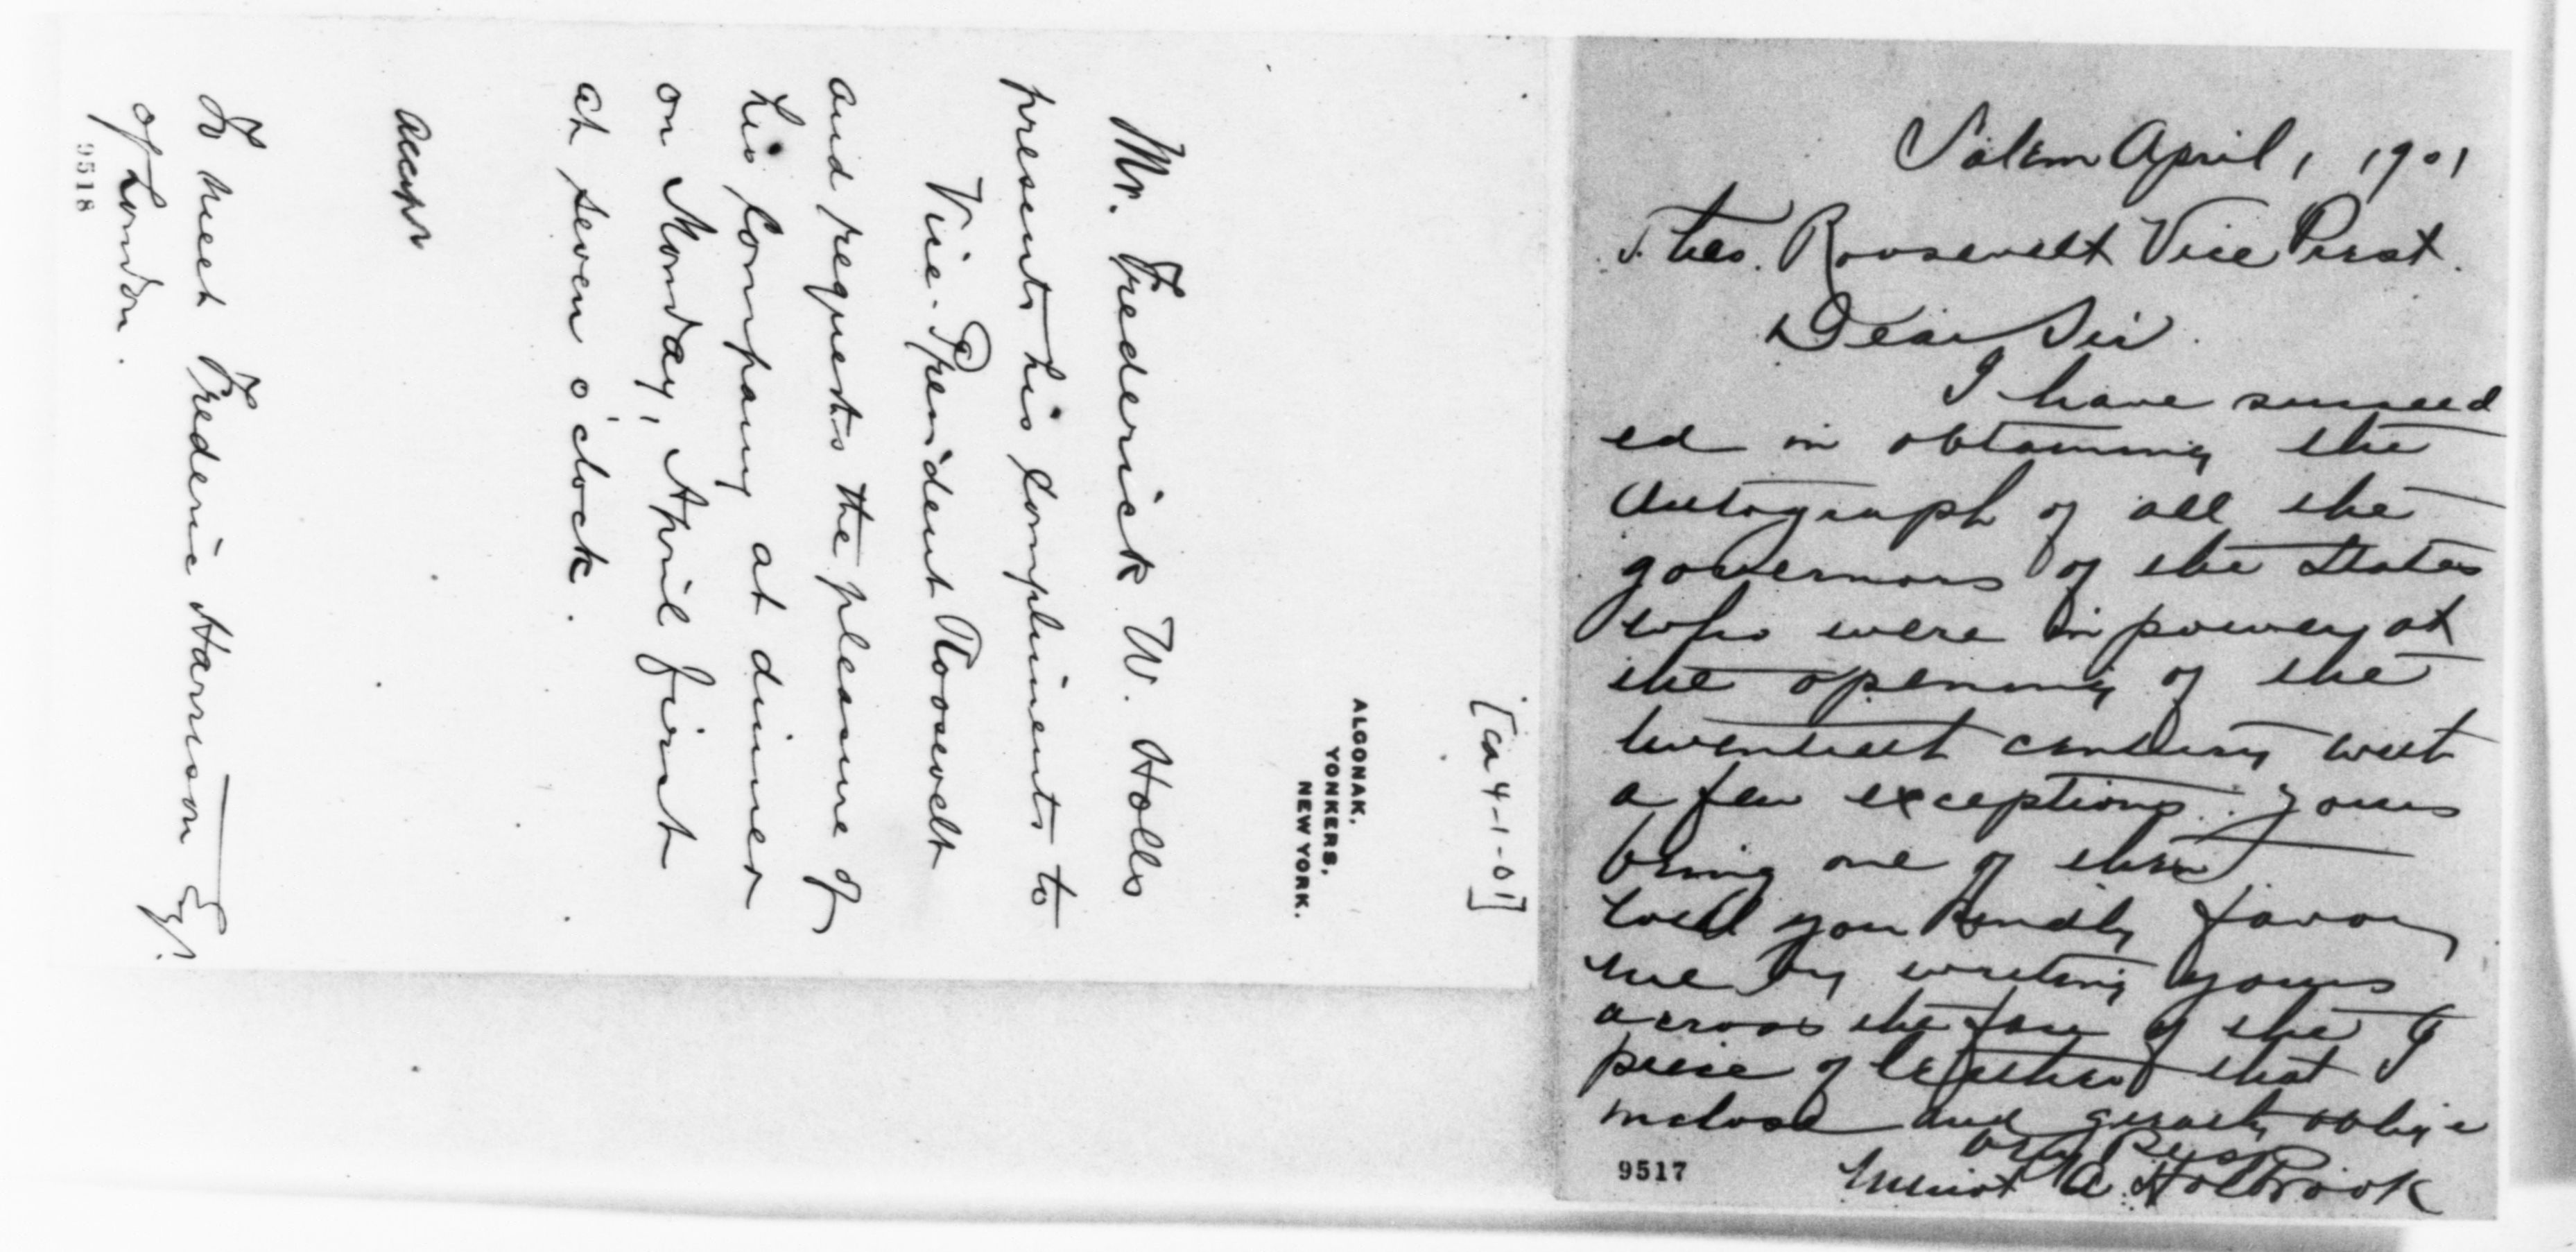 [ca 4-1-01]
ALGONAK,
YONKERS,
NEW YORK.
Mr. Frederick W. Holls
presents his Compliments to
Vice-President Roosevelt
and requests the pleasure of
his Company at dinner
on Monday, April first
at seven o'clock.
To meet Frederic Harrison Esq.
of London.
9518
Salem April, 1901
Theo. Roosevelt Vice Prest.
Dear Sir
I have succeed
ed in obtaining the
autograph of all the
governors of the States
who were in power at
the opening of the
twentieth century with
a few exceptions. yours
being one of them
Will you kindly favor
me by writing yours
across the face of the
piece of leather that I
inclose and greatly oblige
A. Holbrook
9517